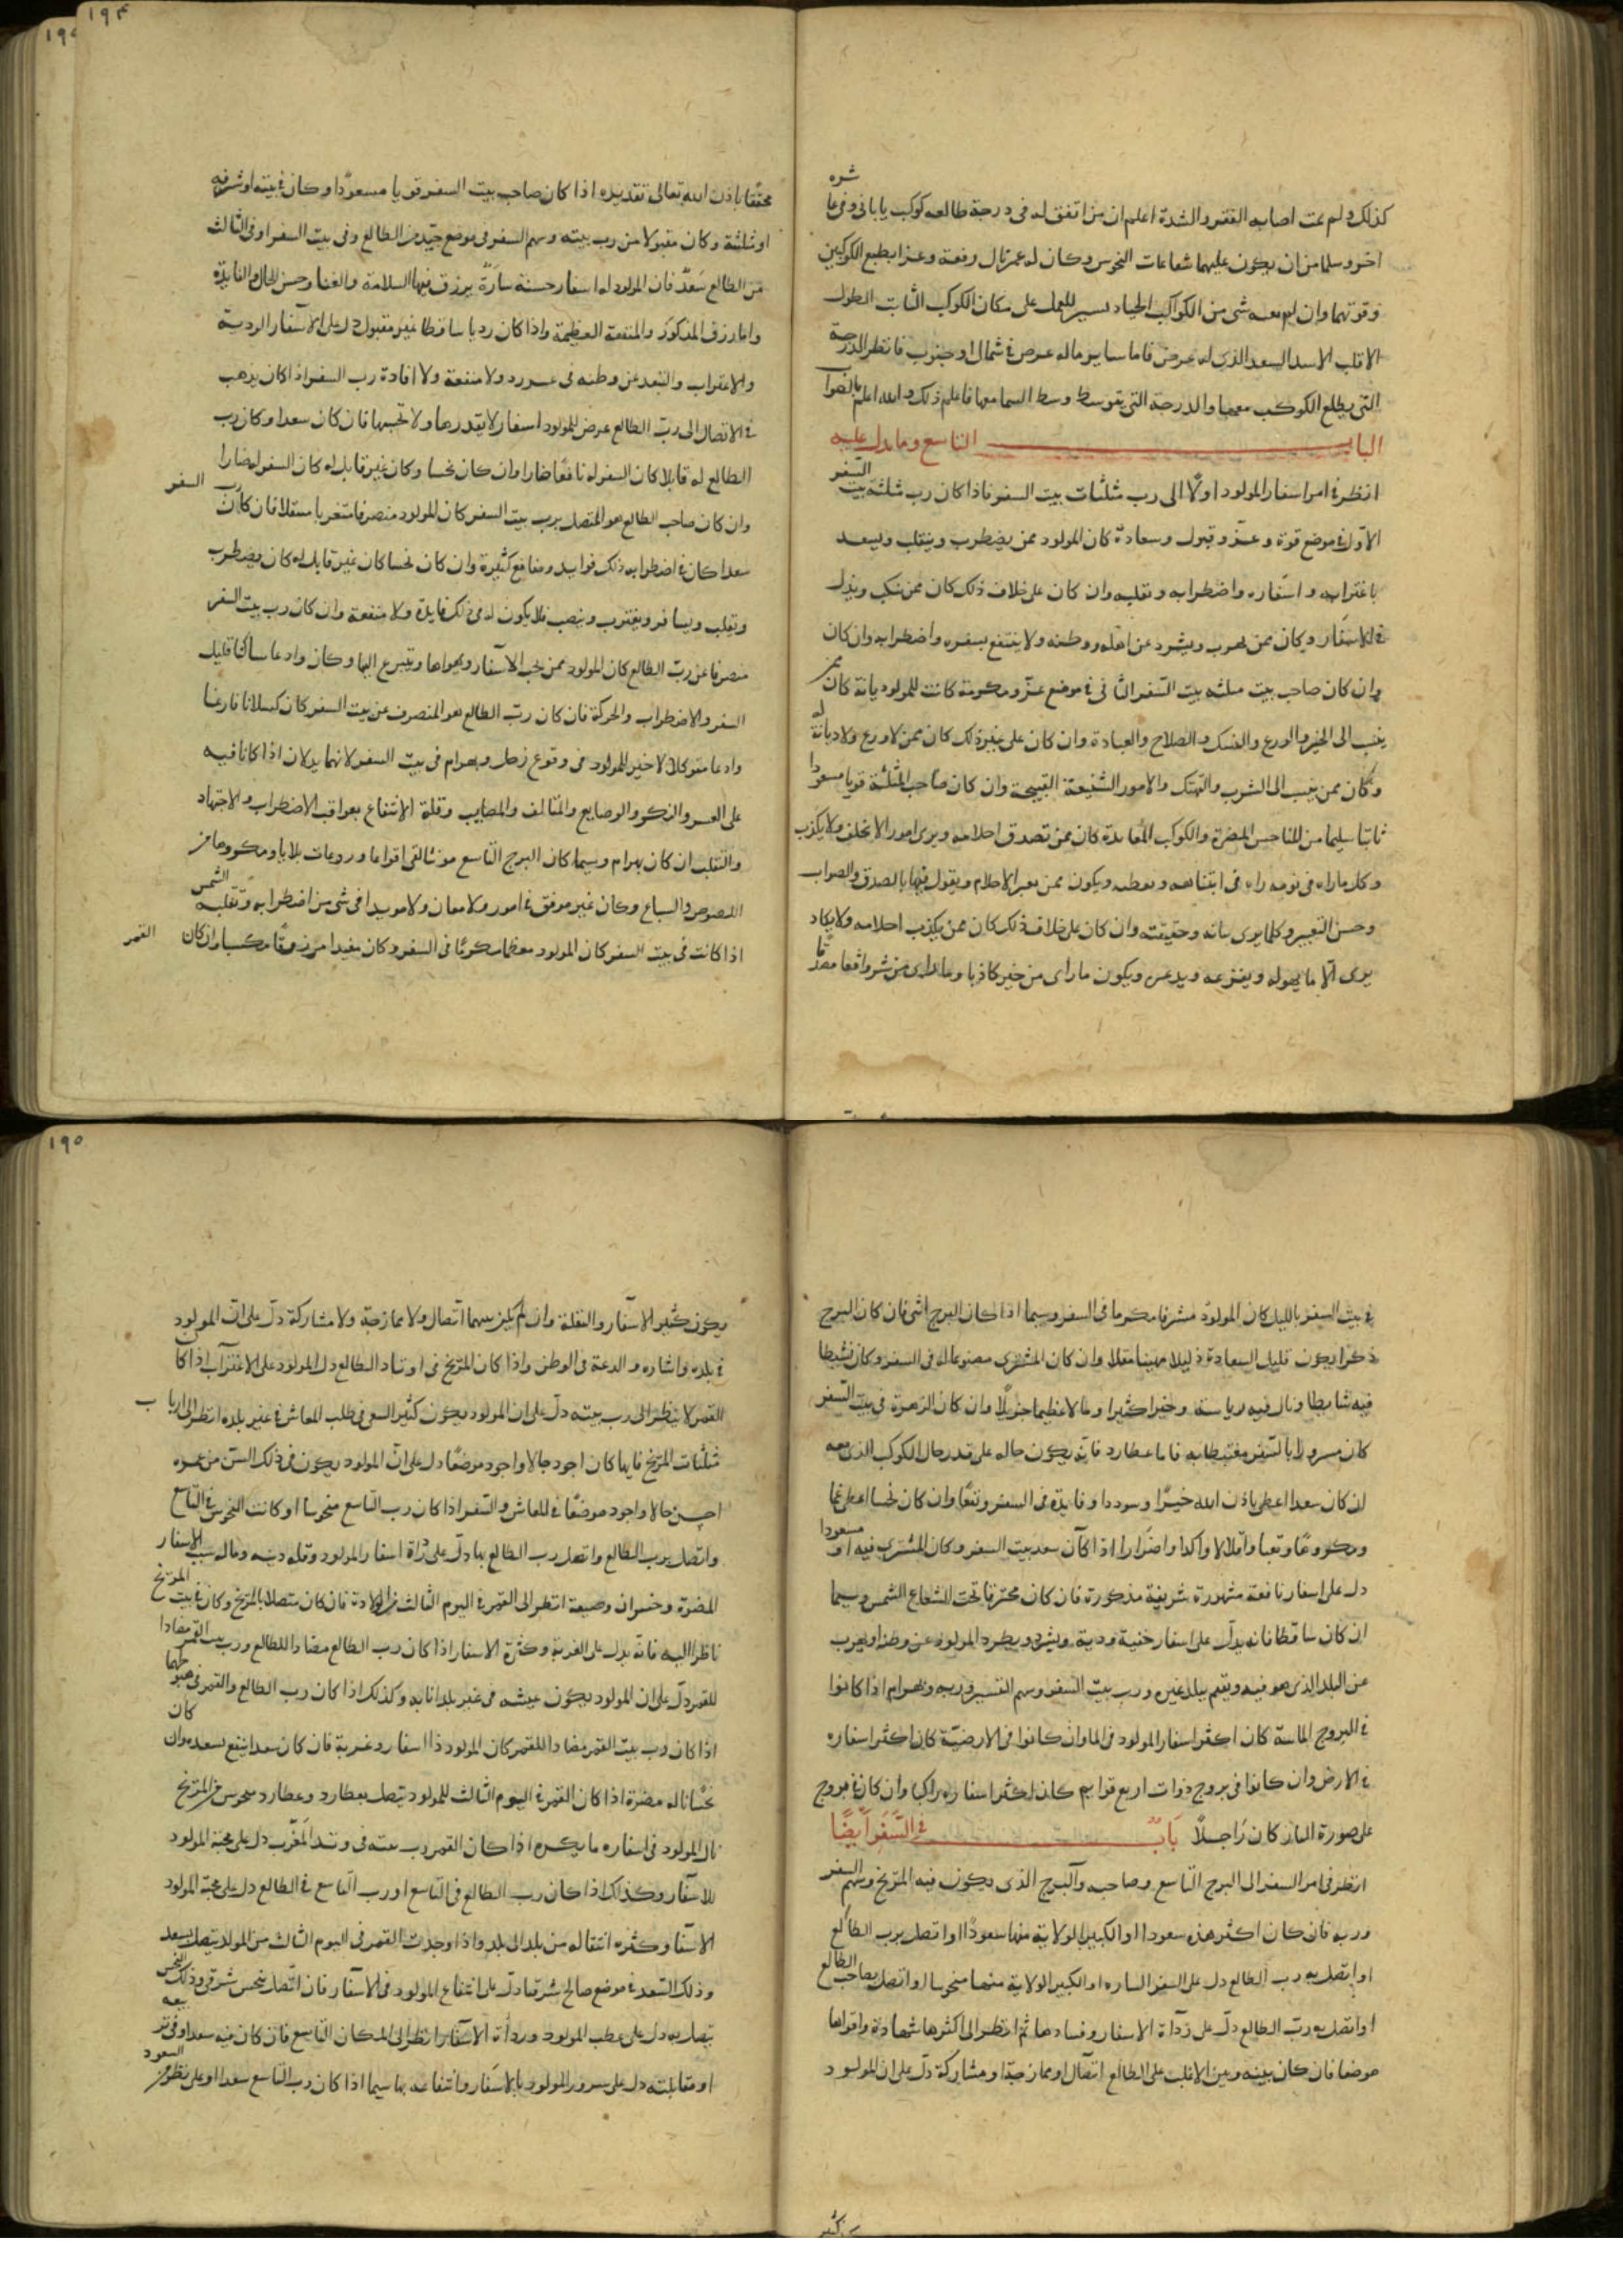 ١٩٤
كذلك ولم يمت اصابه الفقر والشدة اعلم ان من اتفق له فى درجة طالعه كوكب يابانى وفى عاشره
اخر وسلما من ان يكون عليهما شعاعات النحوس وكان له عمر نال رفعة وعزا بطبع الكوكبين
وقوتهما وان لم معه شى من الكواكب الجياد مكان الكوكب الثابت الطول
الاسد السعد الذى له عرض فاما ساير ماله عرض فى شمال او جنوب فانظر الدرجة
التى يطلع الكوكب معها والدرجة التى يتوسط وسط السما معها فاعلم ذلك والله اعلم بالصواب
الباب التاسع وما يدل عليه
انظر فى امر اسفار المولود اولًا الى رب مثلثات بيت السفر فاذا كان رب مثلثة بيت السفر
الاول فى موضع قوة وعز وقبول وسعادة كان المولود ممن يضطرب ويتقلب ويسعد
باغترابه واسفاره واضطرابه وتقلبه وان كان على خلاف ذلك كان ممن ينكب ويذل
فى الاسفار وكان ممن يهرب ويشرد عن اهله ووطنه ولا ينتفع بسفره واضطرابه وان كان
وان كان صاحب بيت مثلثه بيت السفر الثانى فى موضع عز ومكرمة كانت للمولود ديانة كان ممن
ينسب الى الخير والورع والنسك والصلاح والعبادة وان كان على غير ذلك كان ممن لا ورع ولا ديانة له
وكان ممن ينسب الى الشرب والتهتك والامور الشنيعة القبيحة وان كان صاحب المثلثة قويا مسعودا
ثابتا سليما من المناحس المضرة والكواكب المعاندة كان ممن تصدق احلامه ويرى امورا لا تخلف ولا يكذب
وكل ما راه فى نومه راه فى ويكون ممن يعبر الاحلام ويقول فيها بالصدق والصواب
وحسن التعبير وكلما يرى وحقيقته وان كان على خلاف ذلك كان ممن يكذب احلامه ولا يكاد
يرى الا ما يهوله ويفزعه ويكون ما راى من خير كاذبا وما راى من شر واقعا مصدقا
محققا باذن الله تعالى تقديره اذا كان صاحب بيت السفر قويا مسعودًا وكان فى بيته او شرفه
او مثلثة وكان مقبولا من رب بيته وسهم السفر فى موضع جيد من الطالع وفى بيت السفر او فى الثالث
من الطالع سعدٌ فان المولود له اسفار حسنة سارّة يرزق فيها السلامة والغنا وحسن الحال والفايدة
المذكور والمنفعة العظيمة واذا كان رديا ساقطا غير مقبول دل على الاسفار الردية
والاغتراب والتبعد عن وطنه ولا منفعة ولا افادة رب السفر اذا كان يذهب
فى الاتصال الى رب الطالع عرض للمولود اسفار لا يقدرها ولا تحسبها فان كان سعدا وكان رب
الطالع له قابلا كان السفر له نافعًا ضارا وان كان نحسا وكان غير قابل له كان السفر له ضارا
وان كان صاحب الطالع هو المتصل برب بيت السفر كان للمولود متصرفا متغربا متنقلا فان كان رب السفر
سعدا كان فى اضطرابه ذلك فوايد ومنافع كثيرة وان كان نحسا كان غير قابل له كان يضطرب
وتقلب ويسافر ويغترب وينصب فلا يكون له فى ذلك فايدة ولا منفعة وان كان رب بيت السفر
منصرفا عن رب الطالع كان المولود ممن يحب الاسفار ويهواها ويتسرع اليها وكان وادعا ساكنا قليل
السفر والاضطراب والحركة فان كان رب الطالع هو المنصرف عن بيت السفر كان كسلانا فارغا
وادعا متوكلا لا خير للمولود فى وقوع زحل وبهرام فى بيت السفر لانهما يدلان اذا كانا فيه
على العسر والنكر والوصايع والمتالف والمصايب وقلة الانتفاع بعواقب الاضطراب والاجتهاد
والتقلب ان كان بهرام وسيما كان البرج التاسع مونثا لقى اقواما وروعات بلايا ومكروها من
اللصوص والسباع وكان غير موفق فى امور ولا معان ولا مويدا فى شى من اضطرابه وتقلبه الشمس
اذا كانت فى بيت السفر كان المولود معظما مكرمًا فى السفر وكان مفيدا مرزوقًا مكسبا وان كان القمر
١٩٥
فى بيت السفر بالليل كان المولود مشرفا مكرما فى السفر وسيما اذا كان البرج انثى فان كان البرج
ذكرا يكون قليل السعادة ذليلا مهينا مقلا وان كان المشترى مصنوعا له فى السفر وكان نشيطا
فيه ونال فيه رياسة وخيرا كثيرا ومالا عظيما جزيلًا وان كان الزهرة فى بيت السفر
كان مسرورا بالسفر مغتبطا به فاما عطارد فانه يكون حاله على قدر حال الكوكب الذى معه
ان كان سعدا اعطى باذن الله خيرًا وسوددا وفايدة فى السفر ونفعًا وان كان نحسا اعطى غما
ومكروها وتعبا واضرارا اذا كان سعد بيت السفر وكان المشترى فيه او مسعودا
دل على اسفار نافعة مشهورة شريفة مذكورة فان كان محترقا تحت الشعاع الشمس وسيما
ان كان ساقطا فانه يدل على اسفار خفية ودية ويشرد ويطرد المولود عن وطنه او يهرب
عن البلد الذى هو فيه ويقيم ببلد غيره ورب بيت السفر وسهم السفر وربه وبهرام اذا كانوا
فى البروج الماسة كان اكثر اسفار المولود فى الما وان كانوا فى الارضية كان اكثر اسفاره
فى الارض وان كانوا فى بروج ذوات اربع قوايم كان اكثر اسفاره راكبا وان كان فى بروج
على صورة الناس كان راجلًا بابٌ فى السَّفَر ايضًا
انظر فى امر السفر الى البرج التاسع وصاحبه والبرج الذى يكون فيه المريخ وسهم السفر
وربه فان كان اكثر هذه سعودا او الكبير الولاية منها سعودًا او اتصل برب الطالع
او اتصل به رب الطالع دل على السفر الساره او الكبير الولاية منها منحوسا او اتصل بصاحب الطالع
او اتصل به رب الطالع دل على رداة الاسفار وفسادها ثم انظر الى اكثرها شهادة واقواها
موضعا فان كان بينه وبين الاغلب على الطالع اتصال او ممازجة او مشاركة دل على ان المولود
يكون كثير الاسفار والنقلة وان لم يكن بينهما اتصال ولا ممازجة ولا مشاركة دل على ان المولود
فى بلده والدعة فى الوطن واذا كان المريخ فى اوتاد الطالع دل المولود على الاغتراب اذا كان
القمر لا ينظر الى رب بيته دل على ان المولود يكون كثير السعى فى طلب المعاش فى غير بلده انظر الى ارباب
مثلثات المريخ فايها كان اجود حالا واجود موضعًا دل على ان المولود يكون فى ذلك السن من عمره
احسن حالا واجود موضعًا فى المعاش والسفر اذا كان رب التاسع منحوسا او كانت النحوس فى التاسع
واتصل برب الطالع واتصل رب الطالع بها دل على رداة اسفار المولود وقلة دينه وماله سبب الاسفار
المضرة وخسران وضيعة انظر الى القمر فى اليوم الثالث من الولادة فان كان متصلا بالمريخ وكان فى بيت المريخ
ناظرا اليه فانه يدل على الغربة وكثرة الاسفار اذا كان رب الطالع مضادا للطالع ورب بيت القمر مضادا
للقمر دل على ان المولود يكون عيشه فى غير بلدانا به وكذلك اذا كان رب الطالع والقمر فى هبوطهما
اذا كان رب بيت القمر مضادا للقمر كان المولود ذا اسفار وغربة فان كان سعدا ينتفع بسعده وان كان
نحسًا ناله مضرة اذا كان القمر فى اليوم الثالث للمولود يتصل بعطارد وعطارد منحوس من المريخ
نال المولود فى اسفاره ما يكره اذا كان القمر رب بيته فى وتد المغرب دل على محبة المولود
للاسفار وكذلك اذا كان رب الطالع فى التاسع او رب التاسع فى الطالع دل على محبة المولود
الاسفار وكثرة انتقاله من بلد الى بلد واذا وجدت القمر فى اليوم الثالث من المولد يتصل بسعد
وذلك السعد فى موضع صالح دل على انتفاع المولود فى الاسفار فان اتصل بنحس شرقى وذلك النحس
يتصل به دل على عطب المولود ورداة الاسفار انظر الى المكان التاسع فان كان فيه سعد او فى تربيعه
او مقابلته دل على سرور المولود بالاسفار وانتفاعه بها سيما اذا كان رب التاسع سعدا او على نظر من السعود